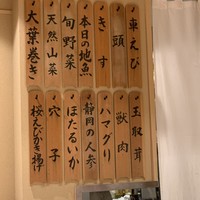 車えび
頭
きす
本日の地魚
旬野菜
天然山菜
大葉巻き
玉取茸
獣肉
ハマグリ
静岡の人参
ほたるいか
穴子
桜えびかき揚げ